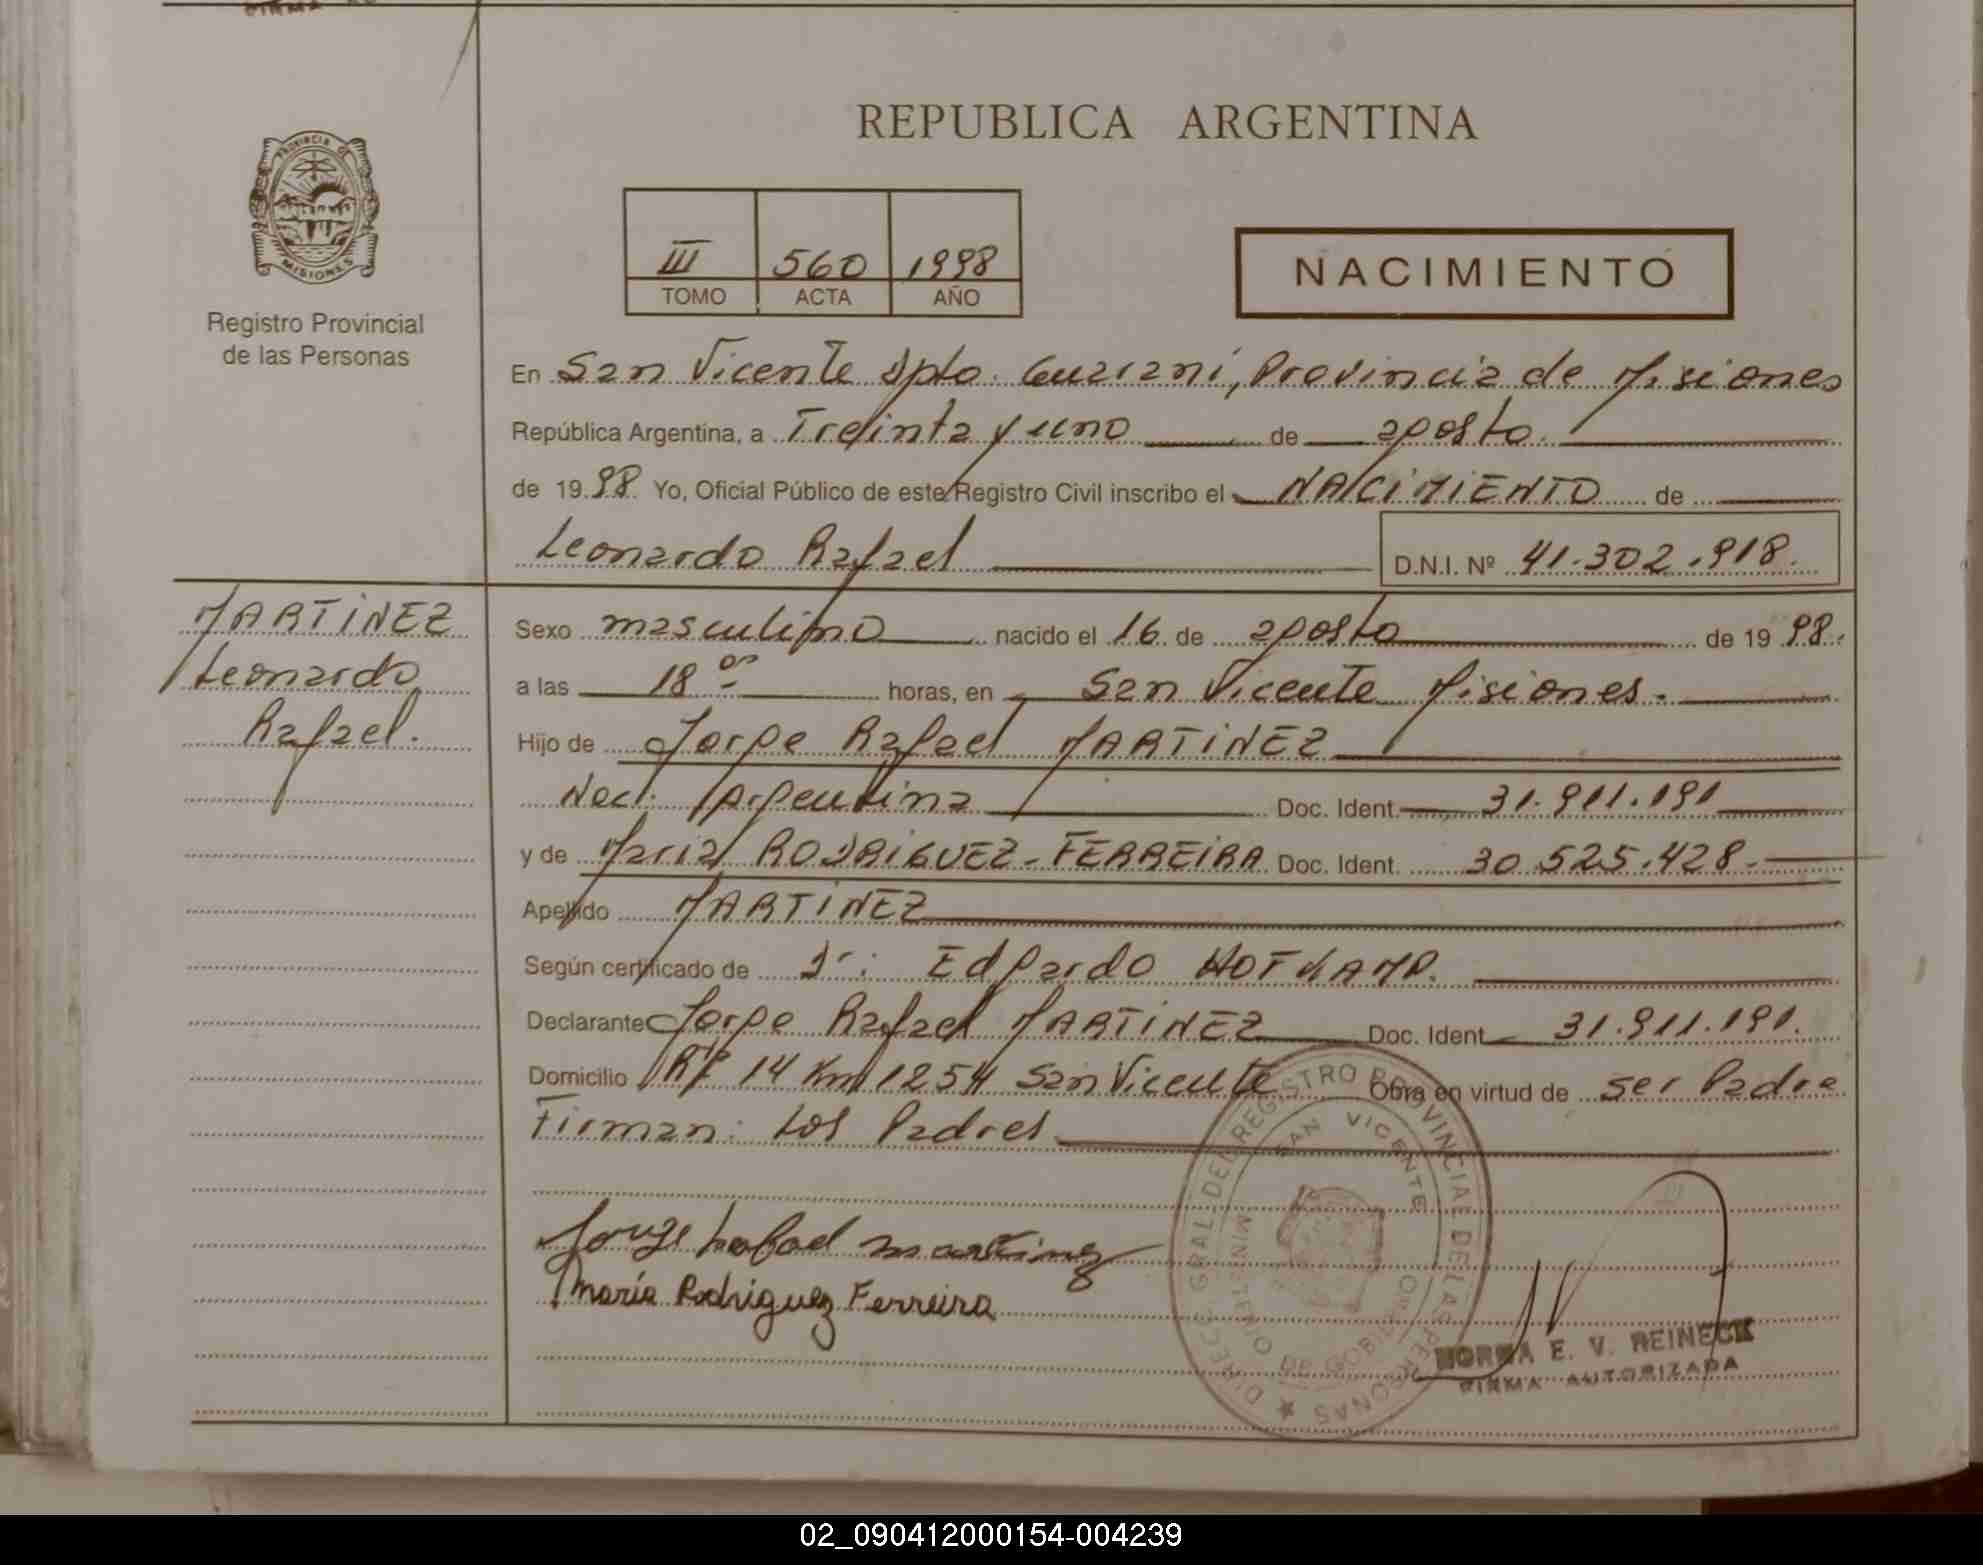 REPUBLICA ARGENTINA
PROVINCIA DE
MISIONES
Registro Provincial
de las Personas
III 560 1998
TOMO ACTA AÑO
NACIMIENTO
En San Vicente Dpto. Guaraní, Provincia de Misiones
República Argentina, a Treinta y uno de agosto.
de 1998. Yo, Oficial Público de este Registro Civil inscribo el NACIMIENTO de
Leonardo Rafael D.N.I. Nº 41.302.918.
MARTINEZ
Leonardo
Rafael.
Sexo masculino nacido el 16 de agosto de 1998.
a las 18 horas, en San Vicente Misiones.
Hijo de Jorge Rafael MARTINEZ
Nac. Argentina Doc. Ident. 31.911.191
y de Maria RODRIGUEZ-FERREIRA Doc. Ident. 30.525.428.
Apellido MARTINEZ
Según certificado de Dr: Edgardo HOFKAMP.
Declarante Jorge Rafael MARTINEZ Doc. Ident 31.911.191.
Domicilio 14 Km 1254 San Vicente Obra en virtud de ser Padre
Firman: Los Padres
Jorge Rafael martinez
María Rodriguez Ferreira
DIRECC. GRAL. DEL REGISTRO PROVINCIAL DE LAS PERSONAS
SAN VICENTE
MINISTERIO DE GOBIERNO
NORMA E. V. REINECK
FIRMA AUTORIZADA
02_090412000154-004239